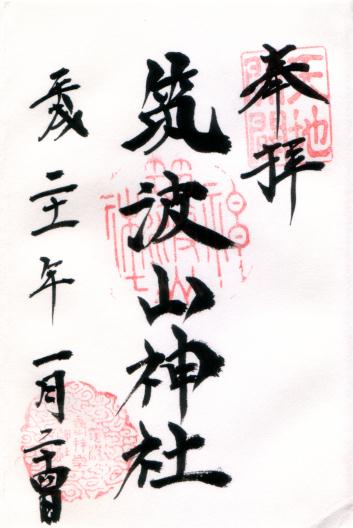 奉拝
天地開闢
筑波山神社
平成二十一年一月二十四日